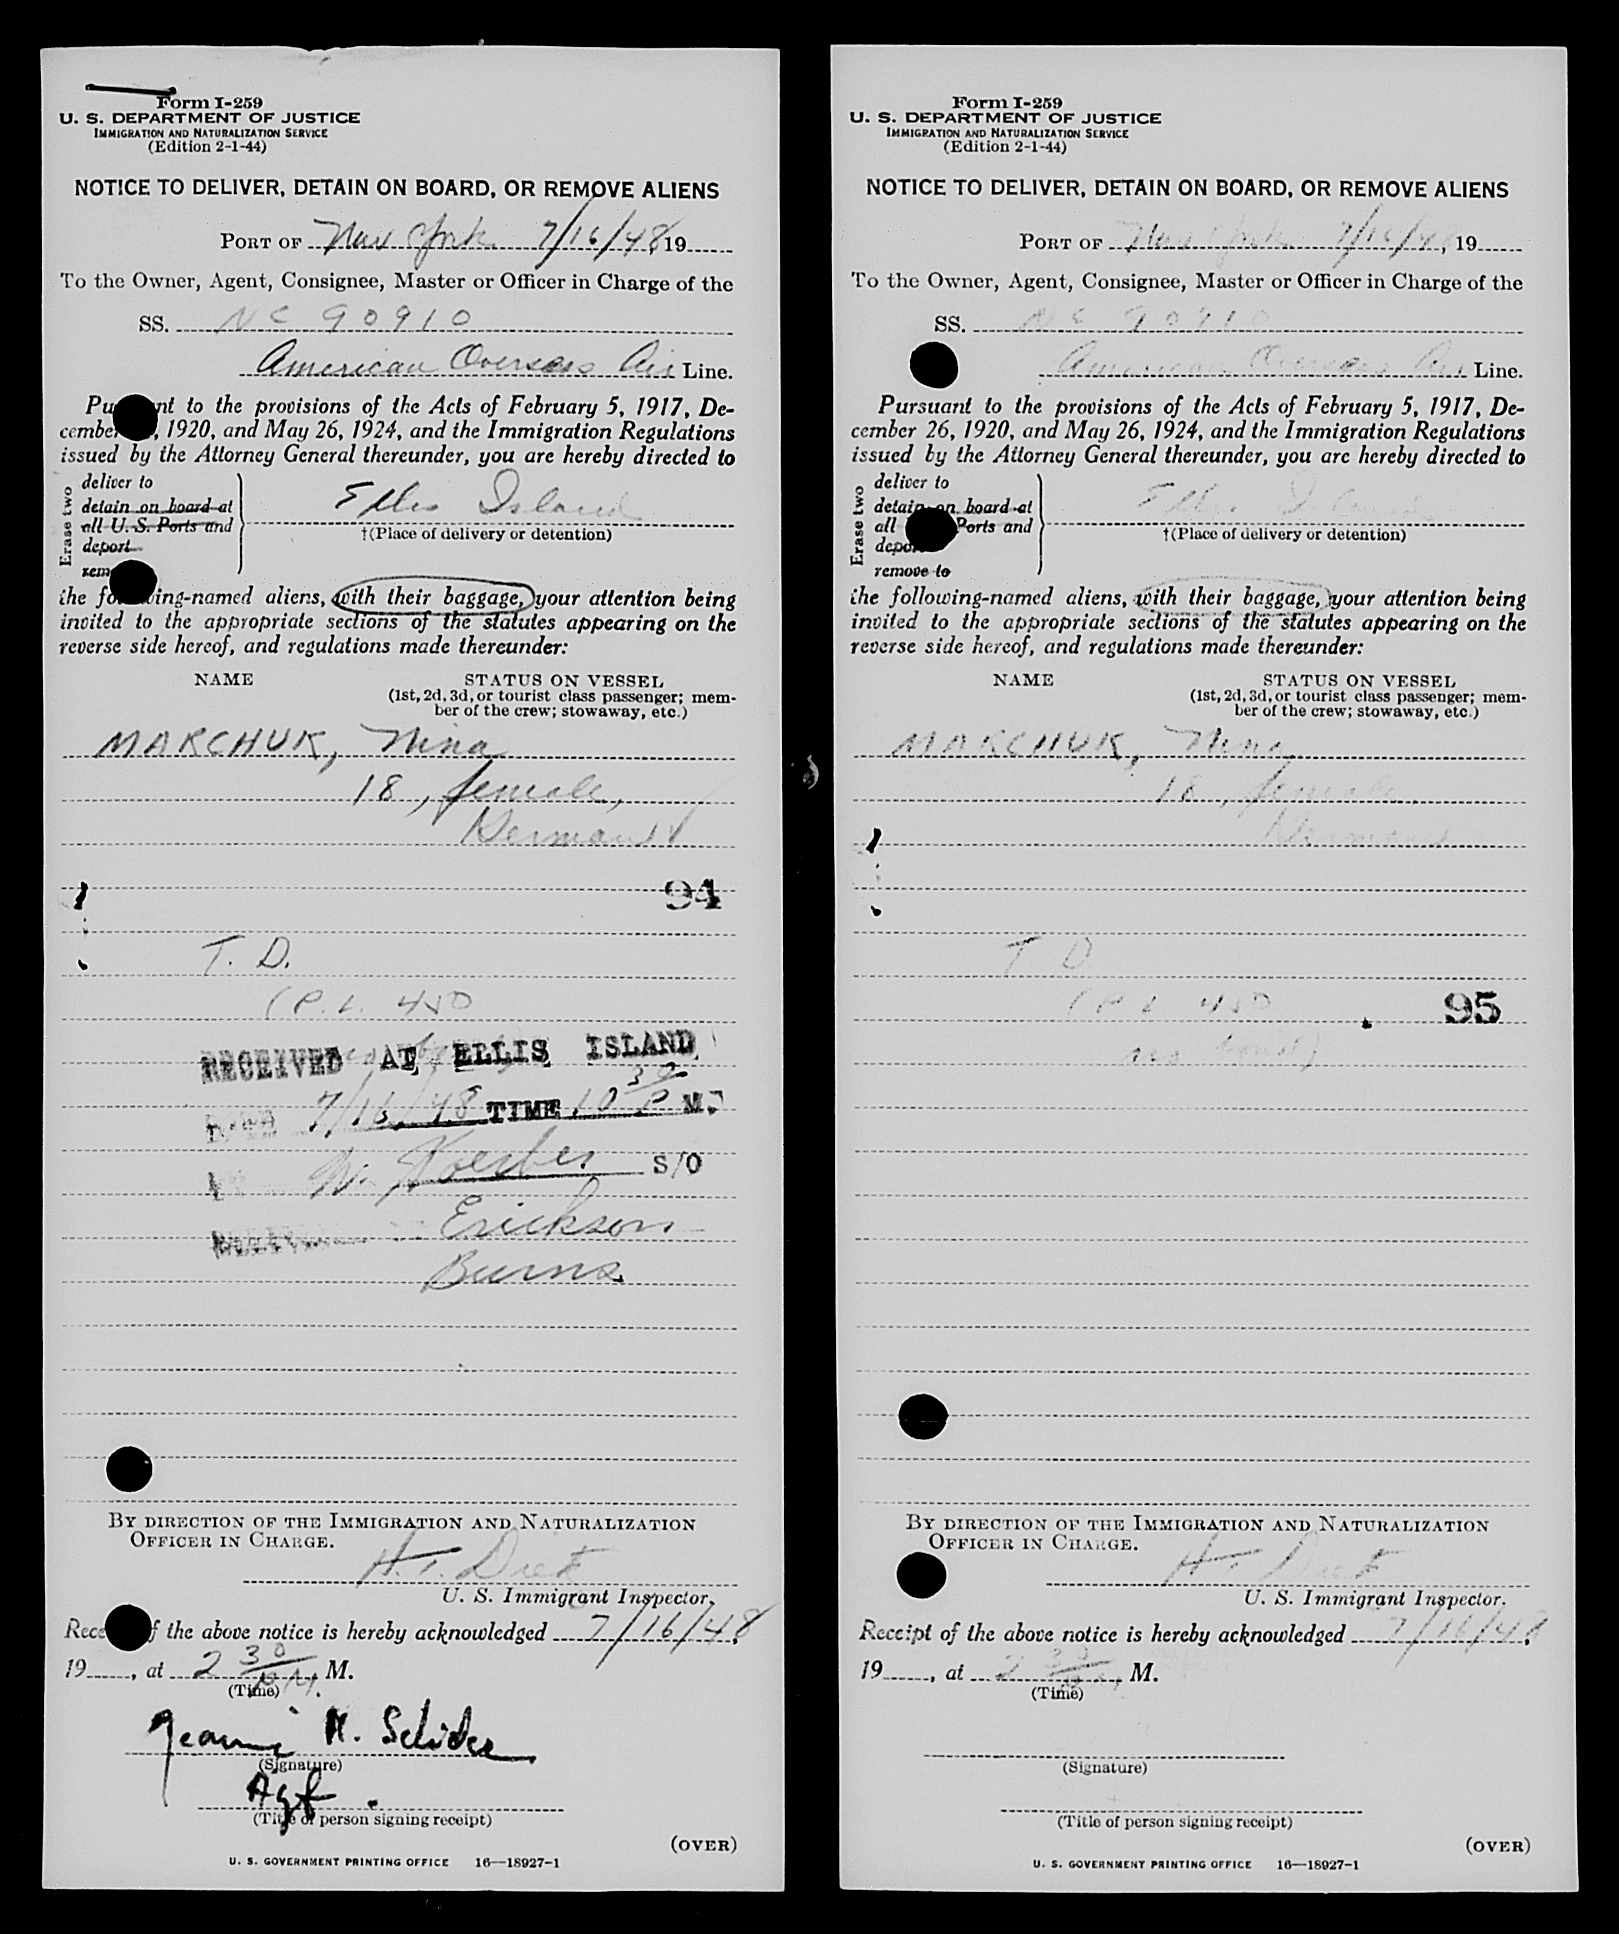 Form I-259
U. S. DEPARTMENT OF JUSTICE
IMMIGRATION AND NATURALIZATION SERVICE
(Edition 2-1-44)
NOTICE TO DELIVER, DETAIN ON BOARD, OR REMOVE ALIENS
PORT OF New York 7/16/48 19
To the Owner, Agent, Consignee, Master or Officer in Charge of the
SS. NC 90910
American Overseas Air Line.
Pu nt to the provisions of the Acts of February 5, 1917, De-
cember , 1920, and May 26, 1924, and the Immigration Regulations
issued by the Attorney General thereunder, you are hereby directed to
Erase two
deliver to
detain on board at
all U. S. Ports and
deport
rem
Ellis Island
†(Place of delivery or detention)
the fo ing-named aliens, with their baggage, your attention being
invited to the appropriate sections of the statutes appearing on the
reverse side hereof, and regulations made thereunder:
NAME STATUS ON VESSEL
(1st, 2d, 3d, or tourist class passenger; mem-
ber of the crew; stowaway, etc.)
MARCHUK, Nina
18, female,
German
94
T. D.
(P. L. 450
RECEIVED AT ELLIS ISLAND
DATE 7/16/48 TIME 10 30 P M.
W. S/O
Erickson
Burns
BY DIRECTION OF THE IMMIGRATION AND NATURALIZATION
OFFICER IN CHARGE.
U. S. Immigrant Inspector.
Rece f the above notice is hereby acknowledged 7/16/48,
19 , at 2 30 P.M. M.
(Time)
(Signature)
Agt.
(Title of person signing receipt)
(OVER)
U. S. GOVERNMENT PRINTING OFFICE 16—18927-1
Form I-259
U. S. DEPARTMENT OF JUSTICE
IMMIGRATION AND NATURALIZATION SERVICE
(Edition 2-1-44)
NOTICE TO DELIVER, DETAIN ON BOARD, OR REMOVE ALIENS
PORT OF New York 7/16/48, 19
To the Owner, Agent, Consignee, Master or Officer in Charge of the
SS. NC 90910
American Overseas Air Line.
Pursuant to the provisions of the Acts of February 5, 1917, De-
cember 26, 1920, and May 26, 1924, and the Immigration Regulations
issued by the Attorney General thereunder, you are hereby directed to
Erase two
deliver to
detain on board at
all Ports and
depor
remove to
Ellis Island
†(Place of delivery or detention)
the following-named aliens, with their baggage, your attention being
invited to the appropriate sections of the statutes appearing on the
reverse side hereof, and regulations made thereunder:
NAME STATUS ON VESSEL
(1st, 2d, 3d, or tourist class passenger; mem-
ber of the crew; stowaway, etc.)
MARCHUK, Nina
18, female,
German
T D
(P L 450
95
BY DIRECTION OF THE IMMIGRATION AND NATURALIZATION
OFFICER IN CHARGE.
U. S. Immigrant Inspector.
Receipt of the above notice is hereby acknowledged 7/16/48,
19 , at 2 30 M.
(Time)
(Signature)
(Title of person signing receipt)
(OVER)
U. S. GOVERNMENT PRINTING OFFICE 16—18927-1